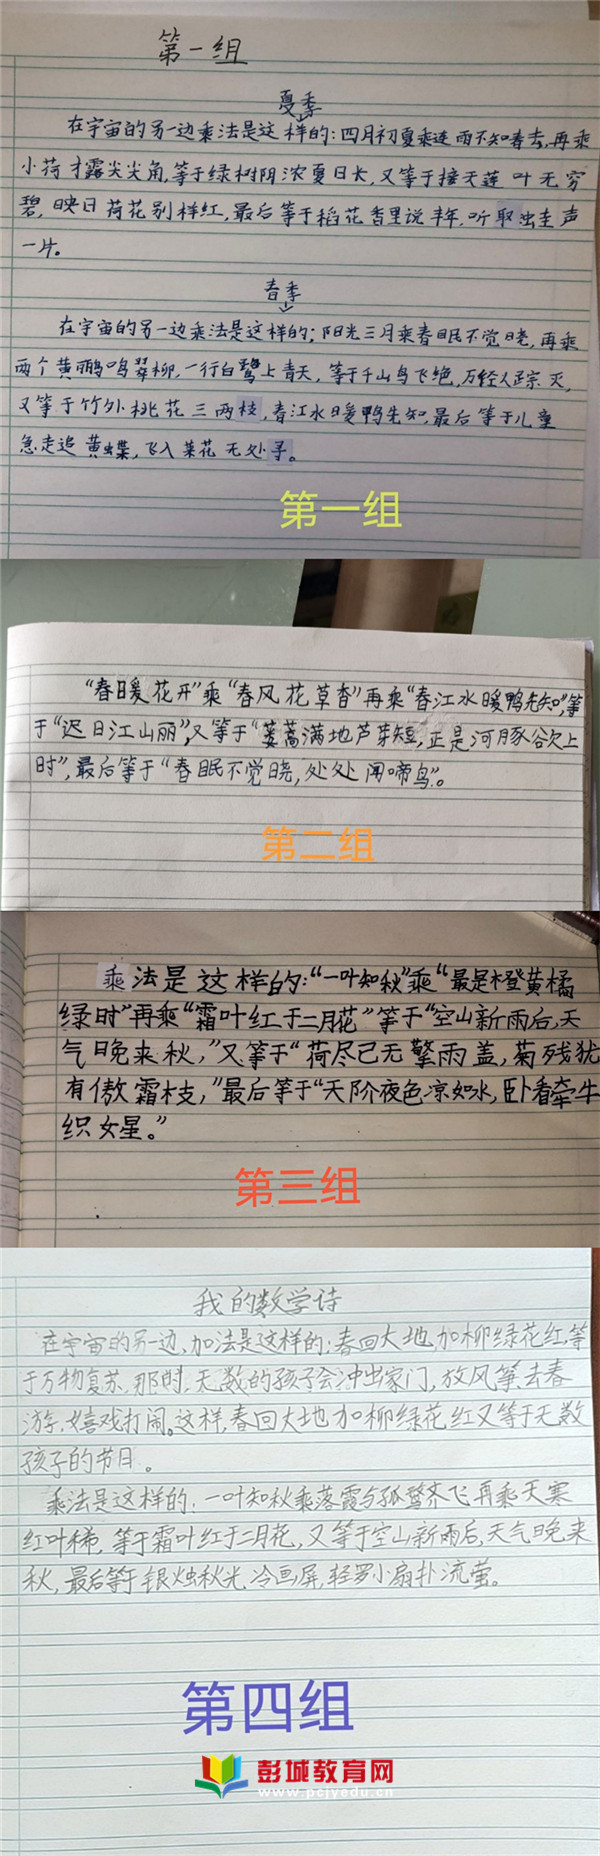 第一组
夏季
在宇宙的另一边乘法是这样的：四月初夏乘连雨不知春去，再乘
小荷才露尖尖角，等于绿树阴浓夏日长，又等于接天莲叶无穷
碧，映日荷花别样红，最后等于稻花香里说丰年，听取蛙声
一片。
春季
在宇宙的另一边乘法是这样的；阳光三月乘春眠不觉晓，再乘
两个黄鹂鸣翠柳，一行白鹭上青天，等于千山鸟飞绝，万径人踪灭，
又等于竹外桃花三两枝，春江水暖鸭先知，最后等于儿童
急走追黄蝶，飞入菜花无处寻。
第一组
“春暖花开”乘“春风花草香”再乘“春江水暖鸭先知”，等
于“迟日江山丽”，又等于“蒌蒿满地芦芽短，正是河豚欲上
时”，最后等于“春眠不觉晓，处处闻啼鸟”。
第二组
乘法是这样的：“一叶知秋”乘“最是橙黄橘
绿时”再乘“霜叶红于二月花”等于“空山新雨后，天
气晚来秋，”又等于“荷尽已无擎雨盖，菊残犹
有傲霜枝，”最后等于“天阶夜色凉如水，卧看牵牛
织女星。”
第三组
我的数学诗
在宇宙的另一边，加法是这样的：春回大地加柳绿花红，等
于万物复苏，那时，无数的孩子会冲出家门，放风筝、去春
游、嬉戏打闹。这样，春回大地加柳绿花红又等于无数
孩子的节日。
乘法是这样的：一叶知秋乘落霞与孤鹜齐飞再乘天寒
红叶稀，等于霜叶红于二月花，又等于空山新雨后，天气晚来
秋，最后等于银烛秋光冷画屏，轻罗小扇扑流萤。
第四组
彭城教育网
www.pcjyedu.cn